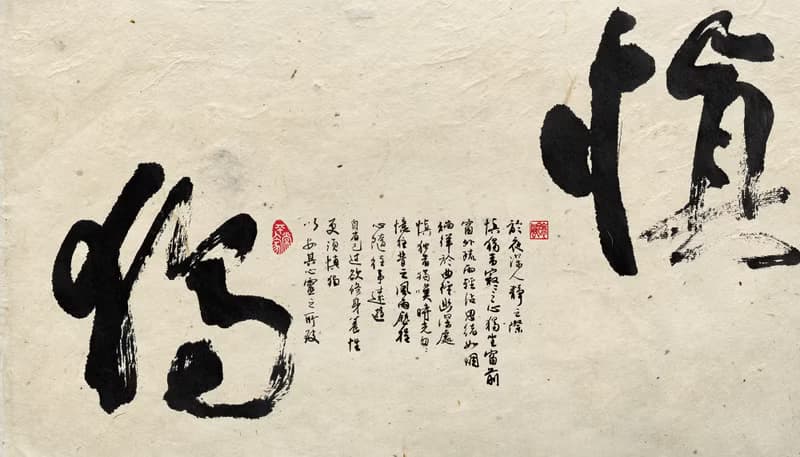 慎
於夜深人靜之際
慎獨者寂寂之心獨坐窗前
窗外疏雨輕沾思緒如烟
徜徉於曲徑幽深處
慎独者獨嘆時光匆匆
憶往昔之風雨歷程
心隨往事遠遊
自省己過欲修身養性
更須慎獨
以安其心靈之所
独